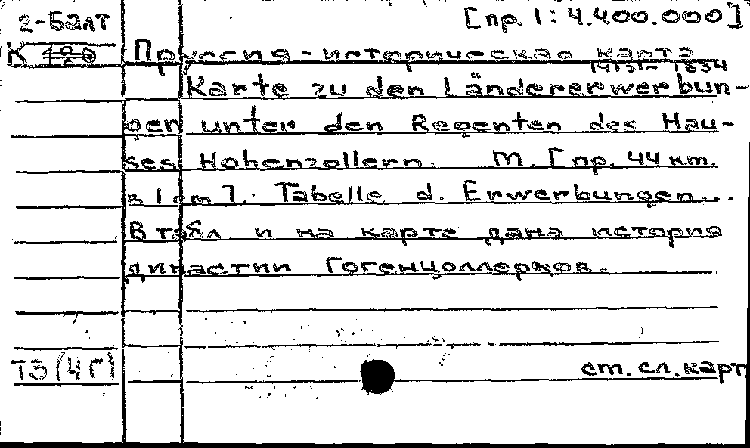 2-Балт [пр. 1:4.400.000]
К Пруссия - историческая карта
1415 - 1834
Karte zu den Ländererwerbun-
gen unter den Regenten des Hau-
ses Hohenzollern. М. [пр. 44 км.
в 1 см]. Tabelle d. Erwerbungen...
В табл и на карте дана история
династии Гогенцоллернов.
ТЗ (4 Г) ст. сл. карт